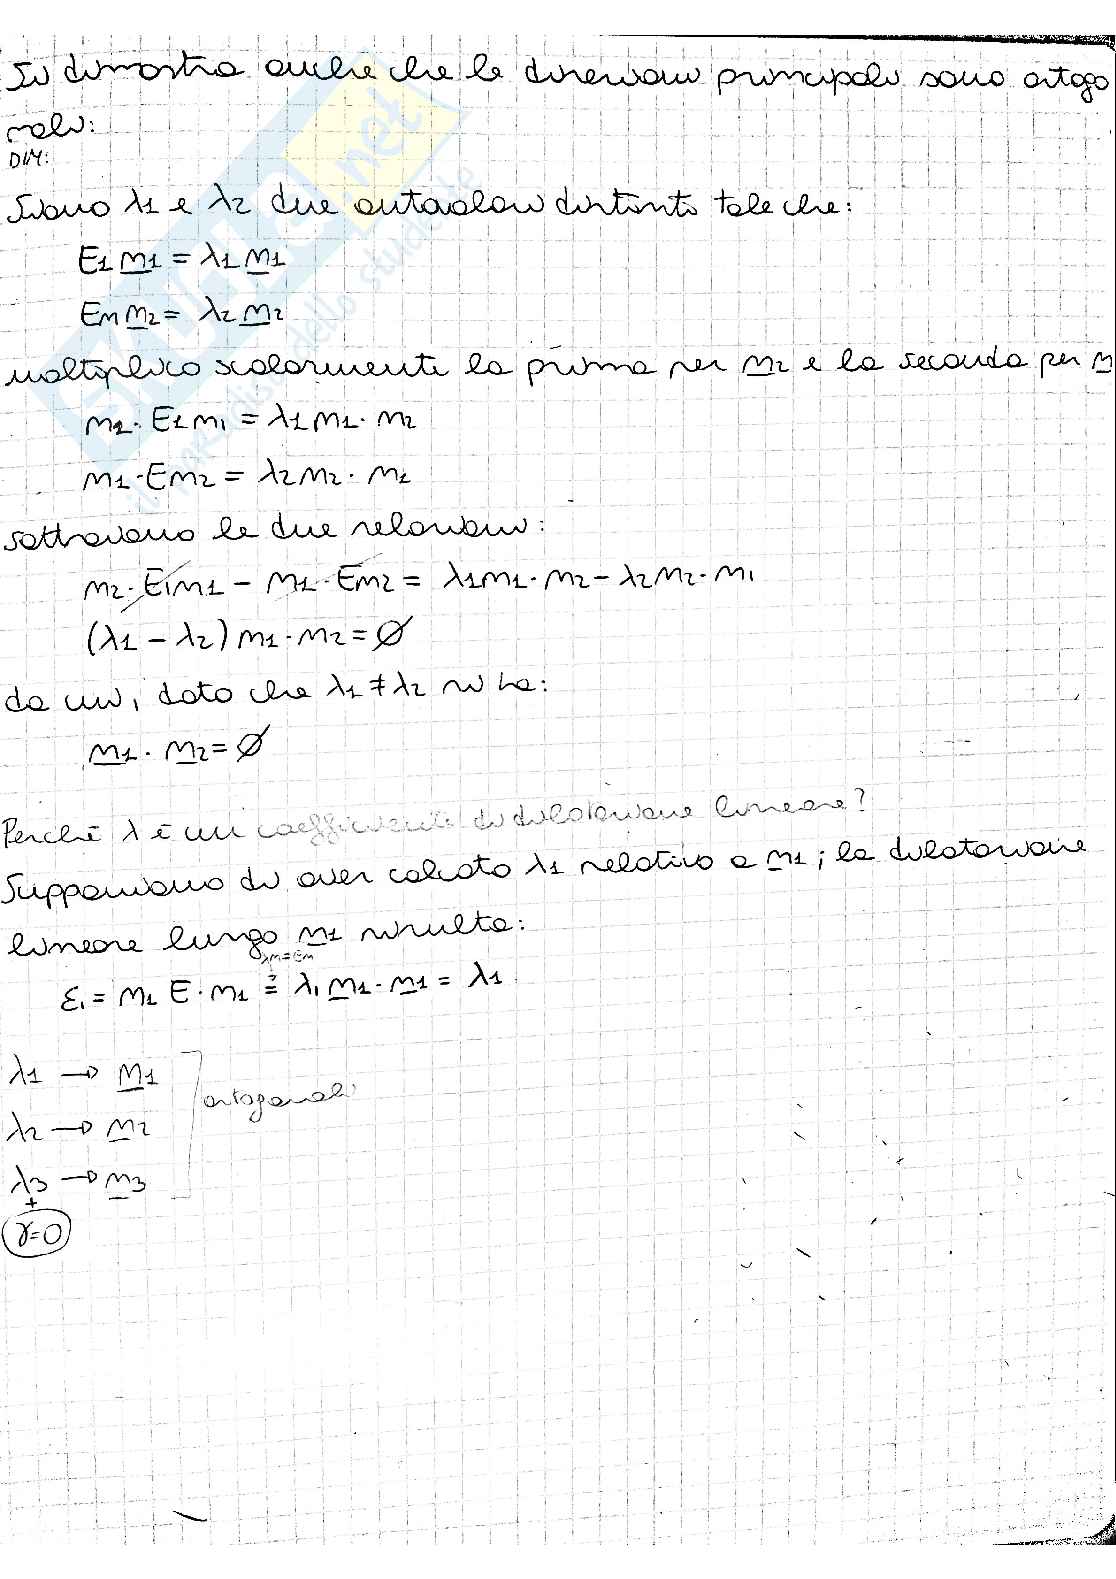 Si dimostra anche che le direzioni principali sono ortogo
nali:
DIM:
Siano λ1 e λ2 due autovalori distinti tale che:
E1 n1 = λ1 n1
En n2 = λ2 n2
moltiplico scalarmente la prima per n2 e la seconda per n
n2 · E1 n1 = λ1 n1 · n2
n1 · E n2 = λ2 n2 · n1
sottraiamo le due relazioni:
n2 · E1 n1 − n1 · E n2 = λ1 n1 · n2 − λ2 n2 · n1
(λ1 − λ2) n1 · n2 = Ø
da cui, dato che λ1 ≠ λ2 si ha:
n1 · n2 = Ø
Perché λ è un coefficiente di dilatazione lineare?
Supponiamo di aver calcolato λ1 relativo a n1; la dilatazione
lineare lungo n1 risulta:
λn = En
ε1 = n1 E · n1 = λ1 n1 · n1 = λ1
λ1 → n1
λ2 → n2
ortogonali
λ3 → n3
+
γ=0
SKUOLA.net
il paradiso dello studente